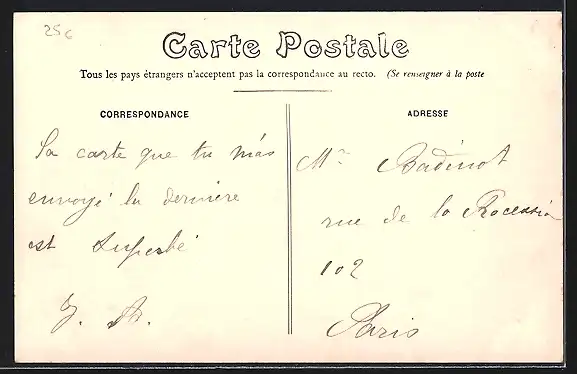 25c
Carte Postale
Tous les pays étrangers n'acceptent pas la correspondance au recto. (Se renseigner à la poste
CORRESPONDANCE
La carte que tu m'as
envoyé la derniere
est superbe
J. A.
ADRESSE
Mr Badinot
rue de la Procession
102
Paris